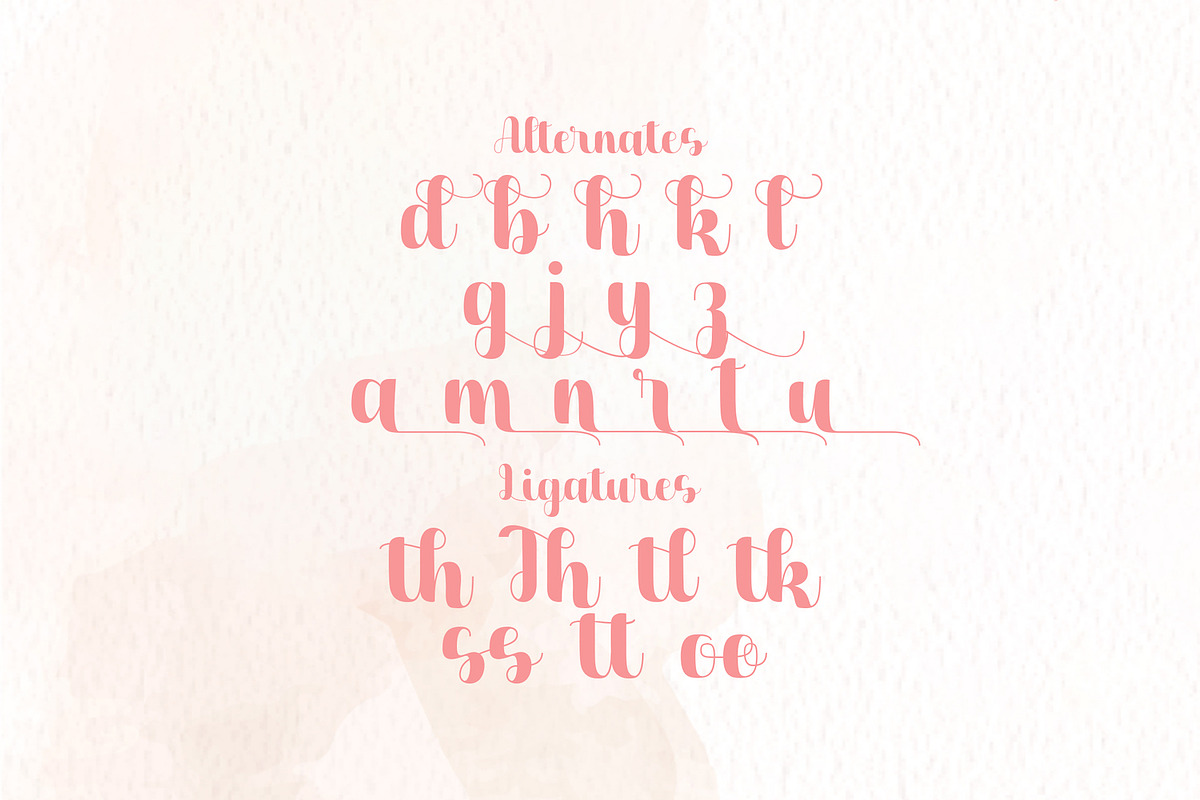 Alternates
d b h k l
g j y z
a m n r t u
Ligatures
th Th tl tk
ss tt oo